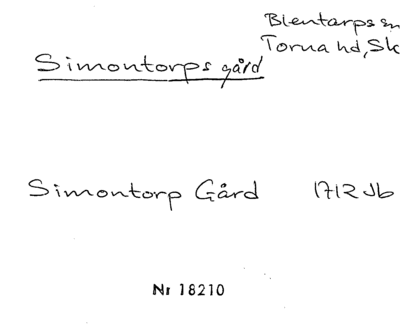 Blentarps sn
Torna hd, Sk
Simontorps gård
Simontorp Gård 1712 Jb
Nr 18210